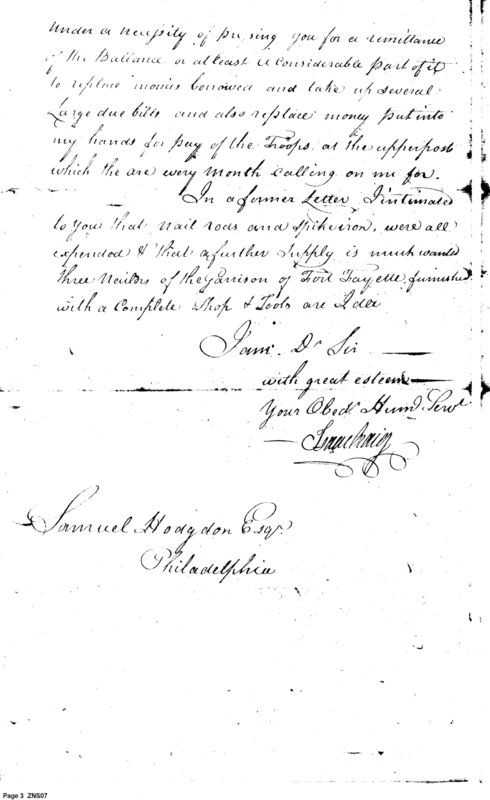 under a necessity of pressing you for a remittance
of the Ballance or at least a Considerable part of it
to replace monies borrowed and take up several
Large due bills and also replace money put into
my hands for pay of the Troops at the upper post
which the are every Month Calling on me for.
In a former Letter I intimated
to You that nail rods and Spike iron, were all
expended & that a further Supply is much wanted
three Nailors of the Garrison of Fort Fayette furnished
with a Complete Shop & Tools are Idle
I am Dr Sir
with great esteem
Your Obedt Humb Servt
Isaac Craig
Samuel Hodgdon Esqr.
Philadelphia
Page 3 ZNS07